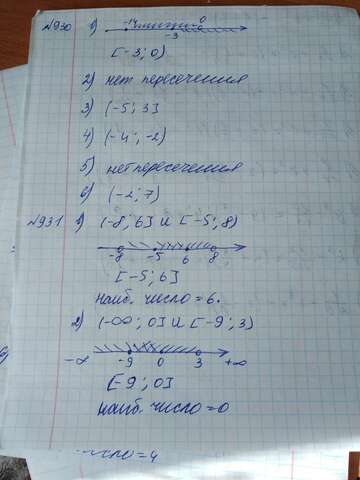 №930 1) -14 -3 0
[-3; 0)
2) нет пересечения
3) (-5; 3]
4) (-4; -2)
5) нет пересечения
6) (-2; 7)
№931 1) (-8; 6] и [-5; 8)
-8 -5 6 8
[-5; 6]
наиб. число = 6.
2) (-∞; 0] и [-9; 3)
-∞ -9 0 3 +∞
[-9; 0]
наиб. число = 0
число = 4